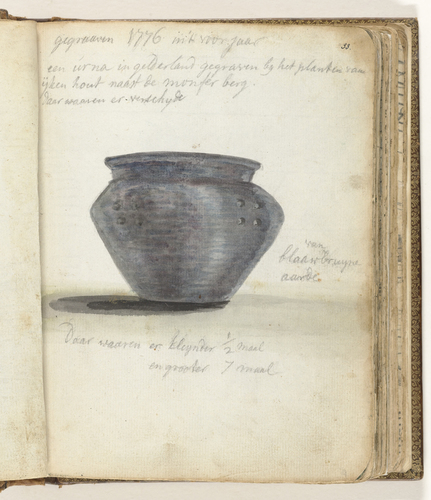 gegraaven 1776 in't voorjaar
33
een urna in gelderland gegraven by het planten van
ijken hout naast de monferberg.
daar waaren er verschyde
van
blaauwbruyne
aarde
Daar waaren er kleynder 1/2 maal
en grooter 7 maal